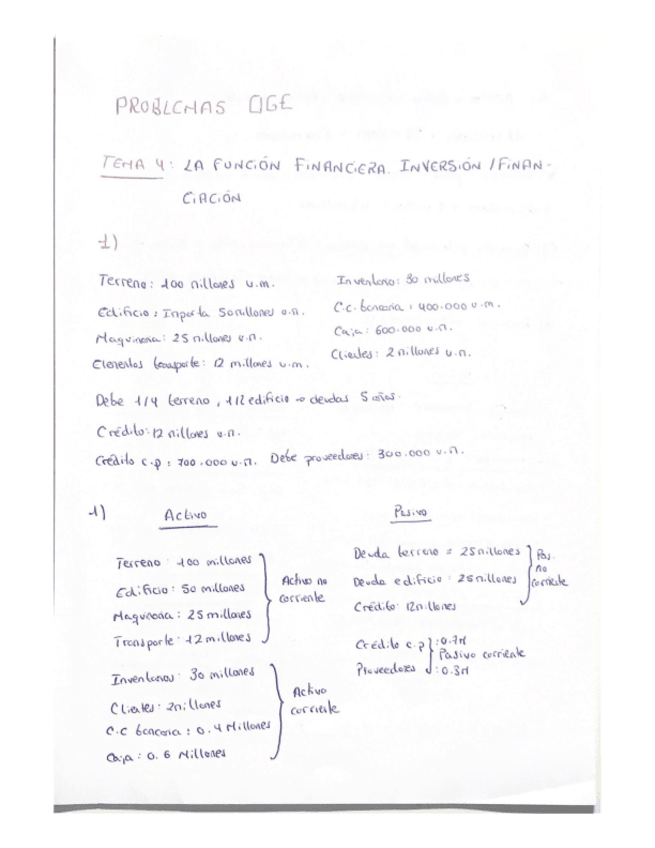 PROBLEMAS OGE
TEMA 4: LA FUNCIÓN FINANCIERA. INVERSIÓN / FINAN-
CIACIÓN
1)
Terreno: 100 millones u.m.
Edificio: Importa 50 millones u.m.
Maquinaria: 25 millones u.m.
Elementos transporte: 12 millones u.m.
Inventario: 30 millones
C.c. bancaria: 400.000 u.m.
Caja: 600.000 u.m.
Clientes: 2 millones u.m.
Debe 1/4 terreno, 1/2 edificio → deudas 5 años.
Crédito: 12 millones u.m.
Crédito c.p: 700.000 u.m. Debe proveedores: 300.000 u.m.
1) Activo
Terreno: 100 millones
Edificio: 50 millones
Maquinaria: 25 millones
Transporte: 12 millones
Activo no
corriente
Inventarios: 30 millones
Clientes: 2 millones
C.C bancaria: 0.4 Millones
Caja: 0.6 Millones
Activo
corriente
Pasivo
Deuda terreno = 25 millones
Deuda edificio: 25 millones
Crédito: 12 millones
Pas.
no
corriente
Crédito c.p: 0.7M
Proveedores: 0.3M
Pasivo corriente